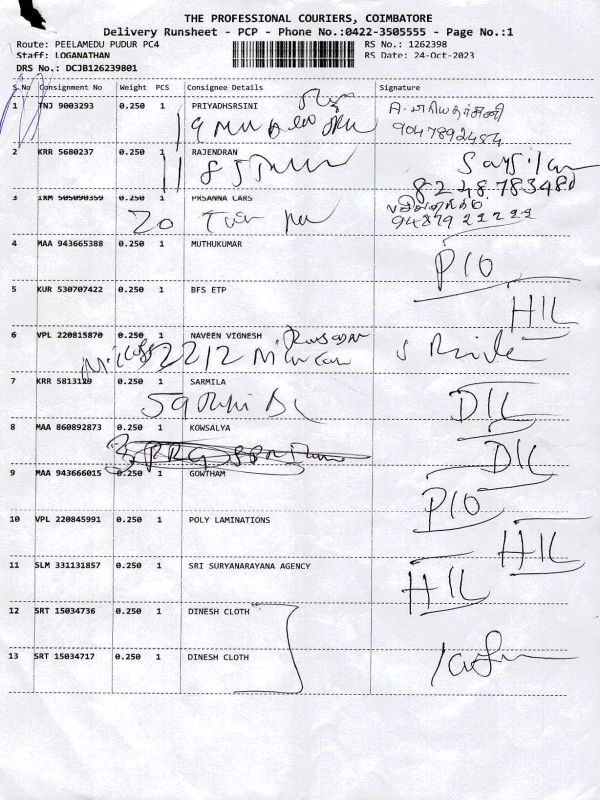 THE PROFESSIONAL COURIERS, COIMBATORE
Delivery Runsheet - PCP - Phone No.:0422-3505555 - Page No.:1
Route: PEELAMEDU PUDUR PC4 RS No.: 1262398
Staff: LOGANATHAN RS Date: 24-Oct-2023
DRS No.: DCJB126239801
S.No Consignment No Weight PCS Consignee Details Signature
1 TNJ 9003293 0.250 1 PRIYADHSRSINI
9047892484
2 KRR 5680237 0.250 1 RAJENDRAN
8248783480
3 IXM 505090359 0.250 1 PRSANNA CARS
20
94879 22222
4 MAA 943665388 0.250 1 MUTHUKUMAR P10
5 KUR 530707422 0.250 1 BFS ETP H1L
6 VPL 220815870 0.250 1 NAVEEN VIGNESH
2212
7 KRR 5813129 0.250 1 SARMILA D1L
59
8 MAA 860892873 0.250 1 KOWSALYA D1L
9 MAA 943666015 0.250 1 GOWTHAM P10
10 VPL 220845991 0.250 1 POLY LAMINATIONS H1L
11 SLM 331131857 0.250 1 SRI SURYANARAYANA AGENCY H1L
12 SRT 15034736 0.250 1 DINESH CLOTH
13 SRT 15034717 0.250 1 DINESH CLOTH